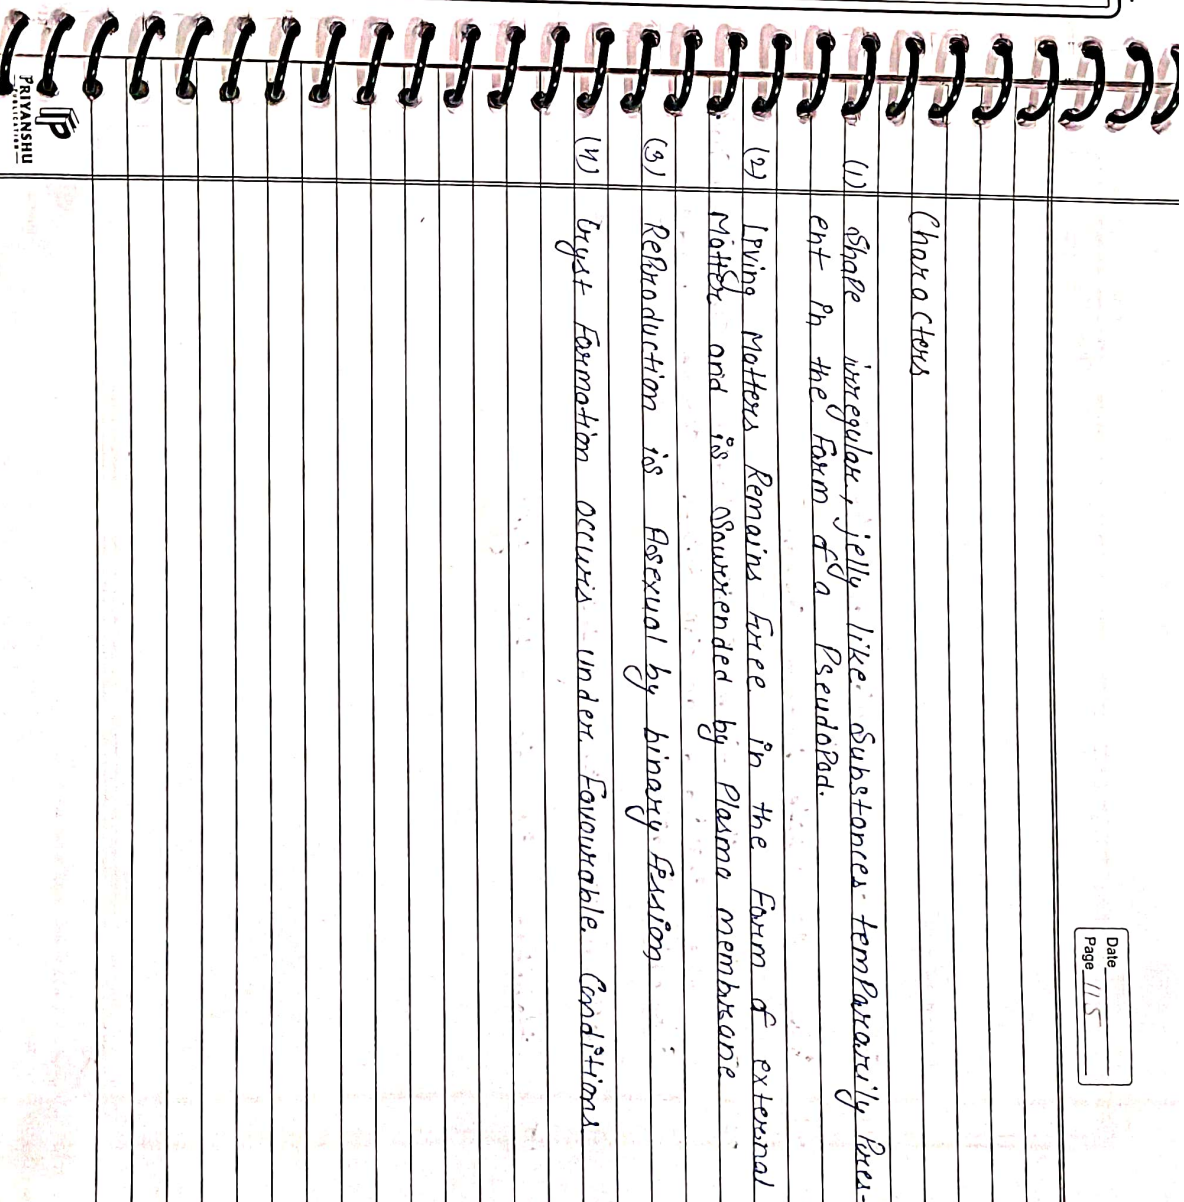 Date
Page 115
Characters
(1) Shape irregular, jelly like Substances temPararily Pres-
ent in the Farm of a PseudoPad.
(2) Living Matters Remains Free in the Farm of external
Matter and is Sourrended by Plasma membrane
(3) RePraduction is Asexual by binary fission
(4) Cryst Farmation occurs under Favourable Conditions
PRIYANSHU
PUBLICATION